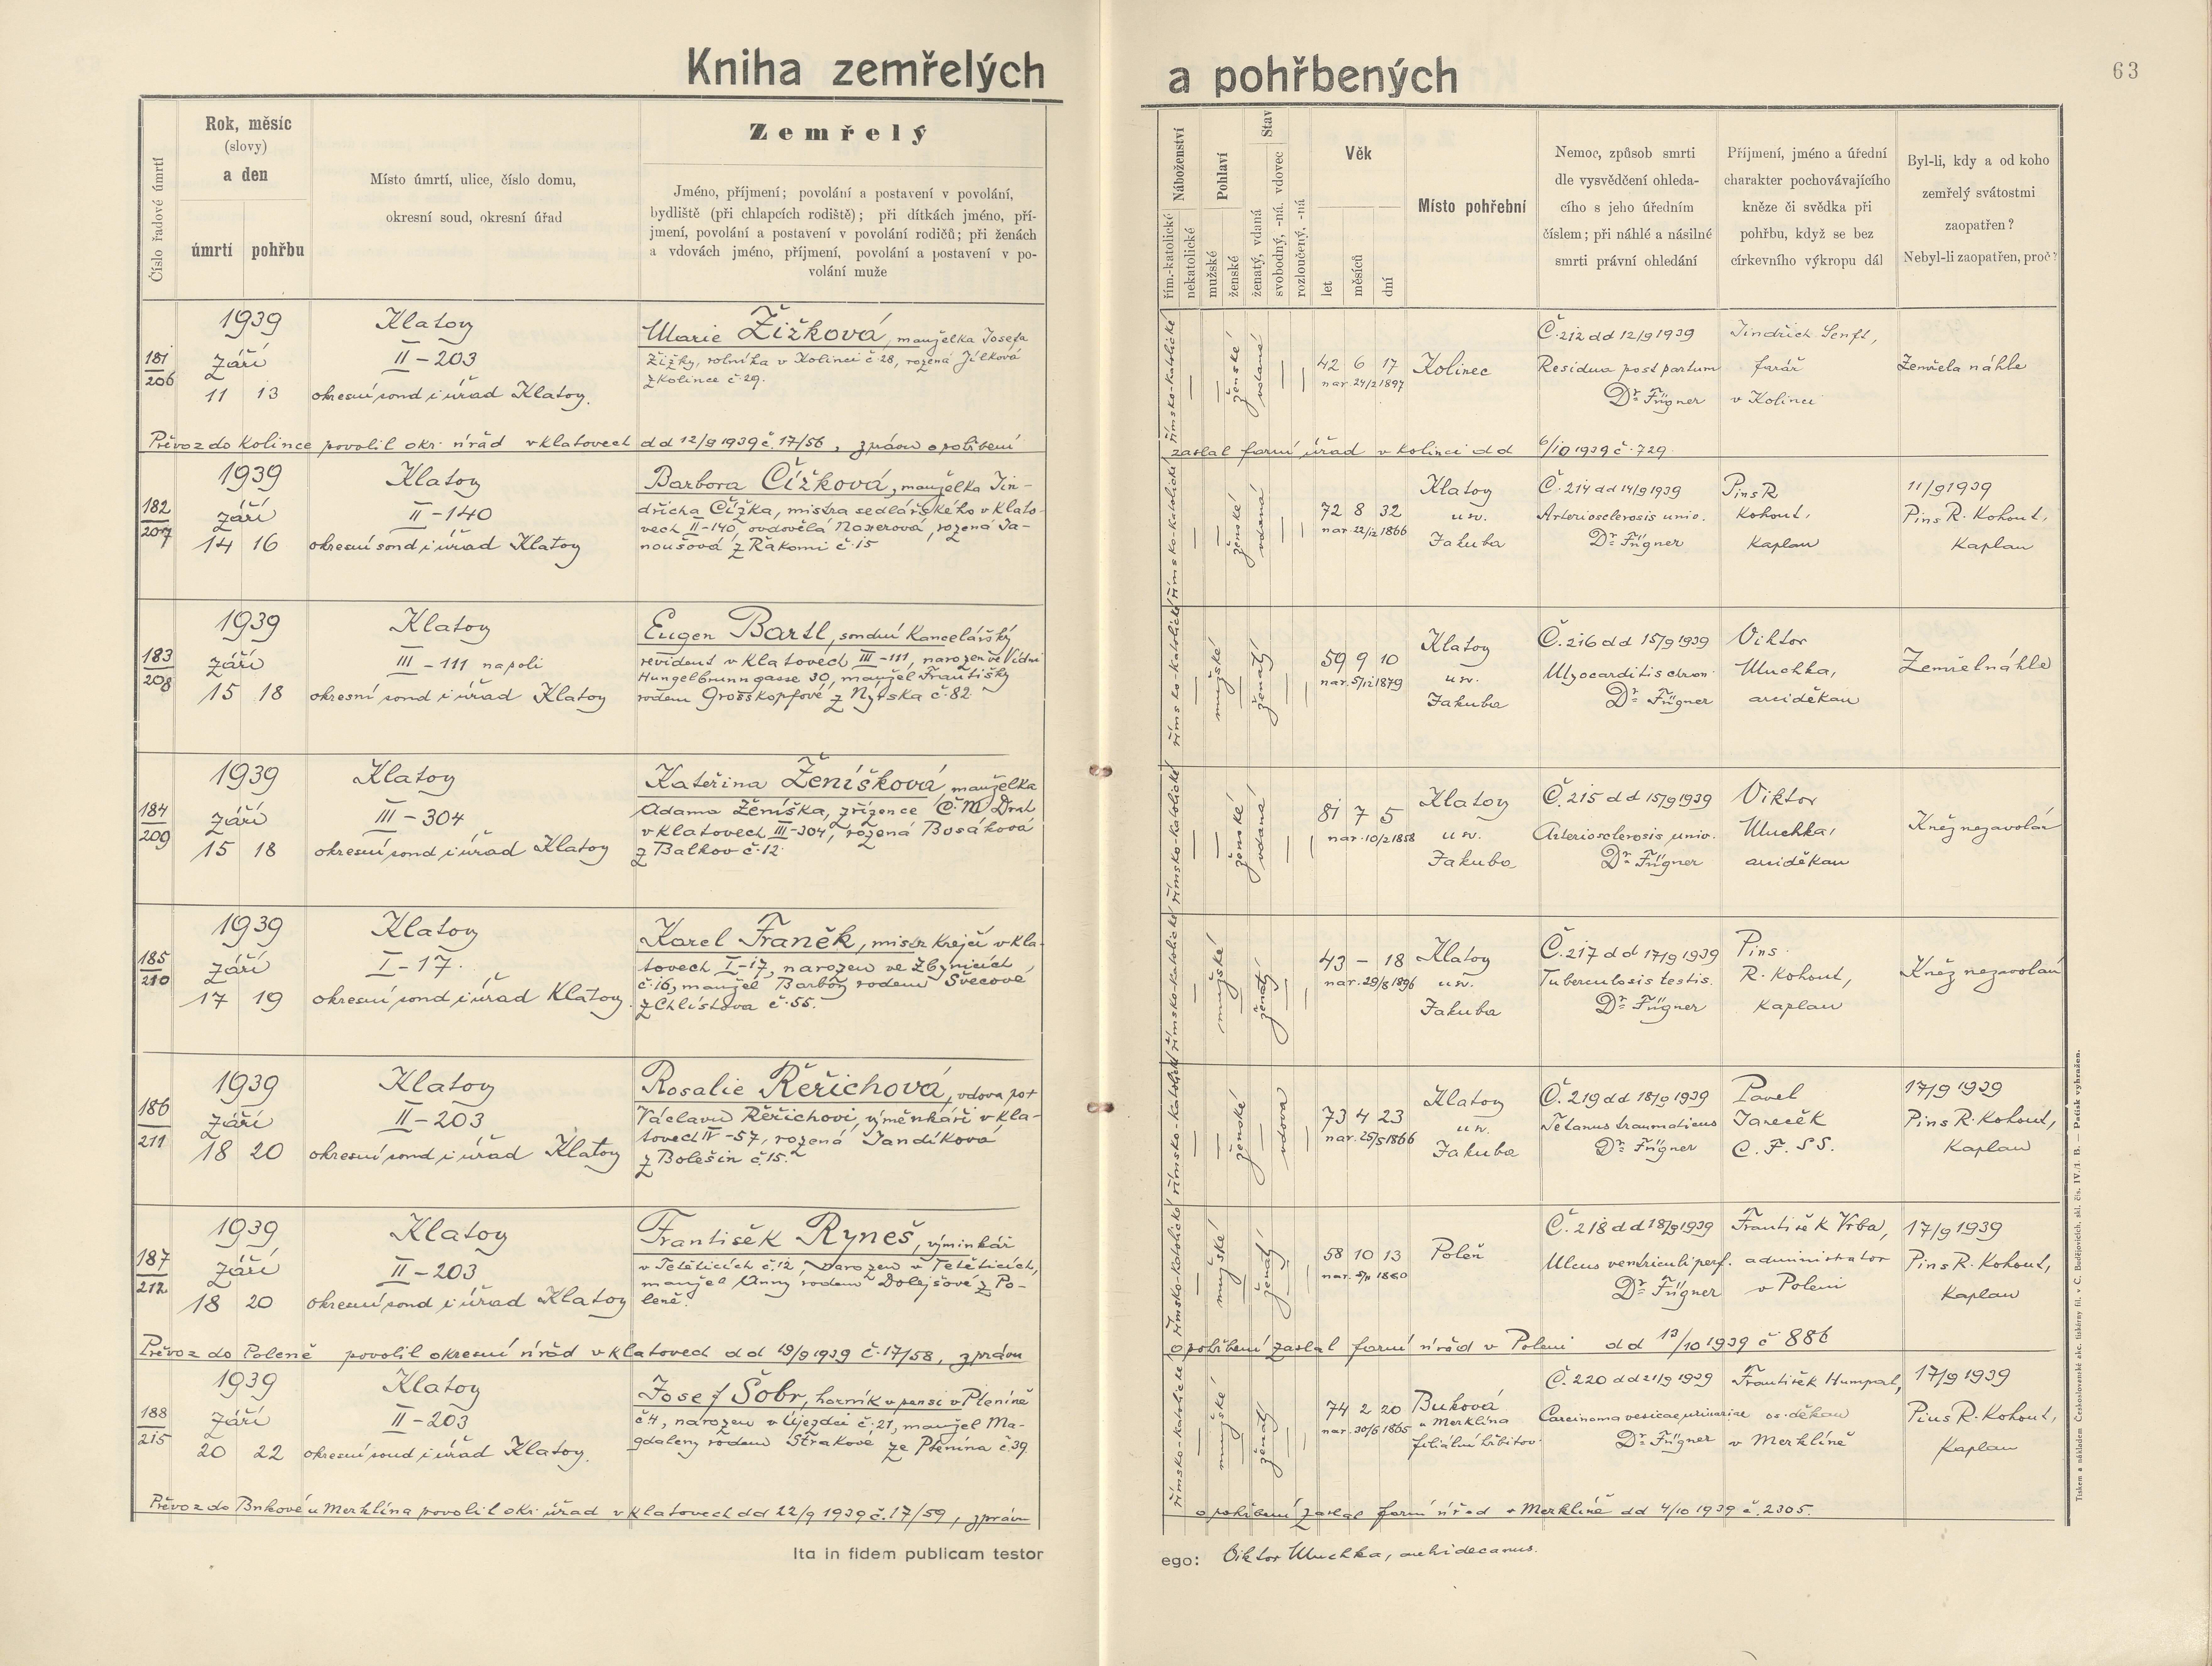 Kniha zemřelých a pohřbených
63
Číslo řadové úmrtí
Rok, měsíc
(slovy)
a den
úmrtí
pohřbu
Místo úmrtí, ulice, číslo domu,
okresní soud, okresní úřad
Zemřelý
Jméno, příjmení; povolání a postavení v povolání,
bydliště (při chlapcích rodiště); při dítkách jméno, pří-
jmení, povolání a postavení v povolání rodičů; při ženách
a vdovách jméno, příjmení, povolání a postavení v po-
volání muže
Náboženství
řím.-katolické
nekatolické
Pohlaví
mužské
ženské
Stav
ženatý, vdaná
svobodný, -ná. vdovec
rozloučený, -ná
Věk
let
měsíců
dní
Místo pohřební
Nemoc, způsob smrti
dle vysvědčení ohleda-
cího s jeho úředním
číslem; při náhlé a násilné
smrti právní ohledání
Příjmení, jméno a úřední
charakter pochovávajícího
kněze či svědka při
pohřbu, když se bez
církevního výkropu dál
Byl-li, kdy a od koho
zemřelý svátostmi
zaopatřen?
Nebyl-li zaopatřen, proč?
181
206
1939
září
11 13
Klatovy
II – 203
okresní soud i úřad Klatovy.
Marie Žižková, manželka Josefa
Žižky, rolníka v Kolinci č. 28, rozená Jílková
z Kolince č. 29.
římsko-katolické
ženské
vdaná
42 6 17
nar. 24/2 1897
Kolinec
Č. 212 dd 12/9 1939
Residua post partum
Dr. Fügner
Jindřich Senft,
farář
v Kolinci
Zemřela náhle
Převoz do Kolince povolil okr. úřad v Klatovech dd 12/9 1939 č. 17/56, zprávu o pohřbení
zaslal farní úřad v Kolinci dd 6/10 1939 č. 729.
182
207
1939
září
14 16
Klatovy
II – 140
okresní soud i úřad Klatovy
Barbora Čížková, manželka Jin-
dřicha Čížka, mistra sedlářského v Klato-
vech II-140, ovdovělá Naxerová, rozená Ja-
noušová z Rakomi č. 15
římsko-katolické
ženské
vdaná
72 8 32
nar. 22/12 1866
Klatovy
u sv.
Jakuba
Č. 214 dd 14/9 1939
Arteriosclerosis univ.
Dr. Fügner
Pius R
Kohout,
Kaplan
11/9 1939
Pius R. Kohout,
Kaplan
183
208
1939
září
15 18
Klatovy
III – 111 napoli
okresní soud i úřad Klatovy
Eugen Bartl, soudní kancelářský
revident v Klatovech III – 111, narozen ve Vídni
Hungelbrunngasse 30, manžel Františky
rodem Grosskopfové z Nýrska č. 82
římsko-katolické
mužské
ženatý
59 9 10
nar. 5/12 1879
Klatovy
u sv.
Jakuba
Č. 216 dd 15/9 1939
Myocarditis chron.
Dr. Fügner
Viktor
Muchka,
arciděkan
Zemřel náhle
184
209
1939
září
15 18
Klatovy
III – 304
okresní soud i úřad Klatovy
Kateřina Ženíšková, manželka
Adama Ženíška, zřízence Č. M. Drah
v Klatovech III-304, rozená Bosáková
z Balkov č. 12
římsko-katolické
ženské
vdaná
81 7 5
nar. 10/2 1858
Klatovy
u sv.
Jakuba
Č. 215 dd 15/9 1939
Arteriosclerosis univ.
Dr. Fügner
Viktor
Muchka,
arciděkan
Kněz nezavolán
185
210
1939
září
17 19
Klatovy
I – 17.
okresní soud i úřad Klatovy.
Karel Franěk, mistr krejčí v Kla-
tovech I-17, narozen ve Zbynicích
č. 16, manžel Barbory rodem Švecové
z Chlístova č. 55.
římsko-katolické
mužské
ženatý
43 – 18
nar. 29/8 1896
Klatovy
u sv.
Jakuba
Č. 217 dd 17/9 1939
Tuberculosis testis.
Dr. Fügner
Pius
R. Kohout,
Kaplan
Kněz nezavolán
186
211
1939
září
18 20
Klatovy
II – 203
okresní soud i úřad Klatovy
Rosalie Řeřichová, vdova po †
Václavu Řeřichovi, výměnkáři v Kla-
tovech IV – 57, rozená Jandíková
z Bolešin č. 15.
římsko-katolické
ženské
vdova
73 4 23
nar. 25/5 1866
Klatovy
u sv.
Jakuba
Č. 219 dd 18/9 1939
Tetanus traumaticus
Dr. Fügner
Pavel
Janeček
C. F. SS.
17/9 1939
Pius R. Kohout,
Kaplan
187
212
1939
září
18 20
Klatovy
II – 203
okresní soud i úřad Klatovy
František Ryneš, výminkář
v Tetěticích č. 12, narozen v Tetěticích,
manžel Anny rodem Dolejšové z Po-
leně.
římsko-katolické
mužské
ženatý
58 10 13
Poleň
Č. 218 dd 18/9 1939
Ulcus ventriculi perf.
Dr. Fügner
František Vrba,
administrator
v Poleni
17/9 1939
Pius R. Kohout,
Kaplan
Převoz do Poleně povolil okresní úřad v Klatovech dd 19/9 1939 č. 17/58, zprávu
o pohřbení zaslal farní úřad v Poleni dd 13/10 1939 č 886
188
215
1939
září
20 22
Klatovy
II – 203
okresní soud i úřad Klatovy.
Josef Šobr, horník v pensi v Pleníně
č 4, narozen v Újezdci č. 21, manžel Ma-
gdaleny rodem Strakové ze Plenína č. 39
římsko-katolické
mužské
ženatý
74 2 20
nar. 30/6 1865
Buková
u Merklína
filiální hřbitov.
Č. 220 dd 21/9 1939
Carcinoma vesicae urinariae
Dr. Fügner
František Humpal,
os. děkan
v Merklíně
17/9 1939
Pius R. Kohout,
Kaplan
Převoz do Bukové u Merklína povolil okr. úřad v Klatovech dd 22/9 1939 č. 17/59, zprávu
o pohřbení zaslal farní úřad v Merklíně dd 4/10 1939 č. 2305.
Ita in fidem publicam testor
ego: Viktor Muchka, archidecanus.
Tiskem a nákladem Československé akc. tiskárny fil. v Č. Budějovicích, skl. čís. IV./1. B. — Patisk vyhražen.